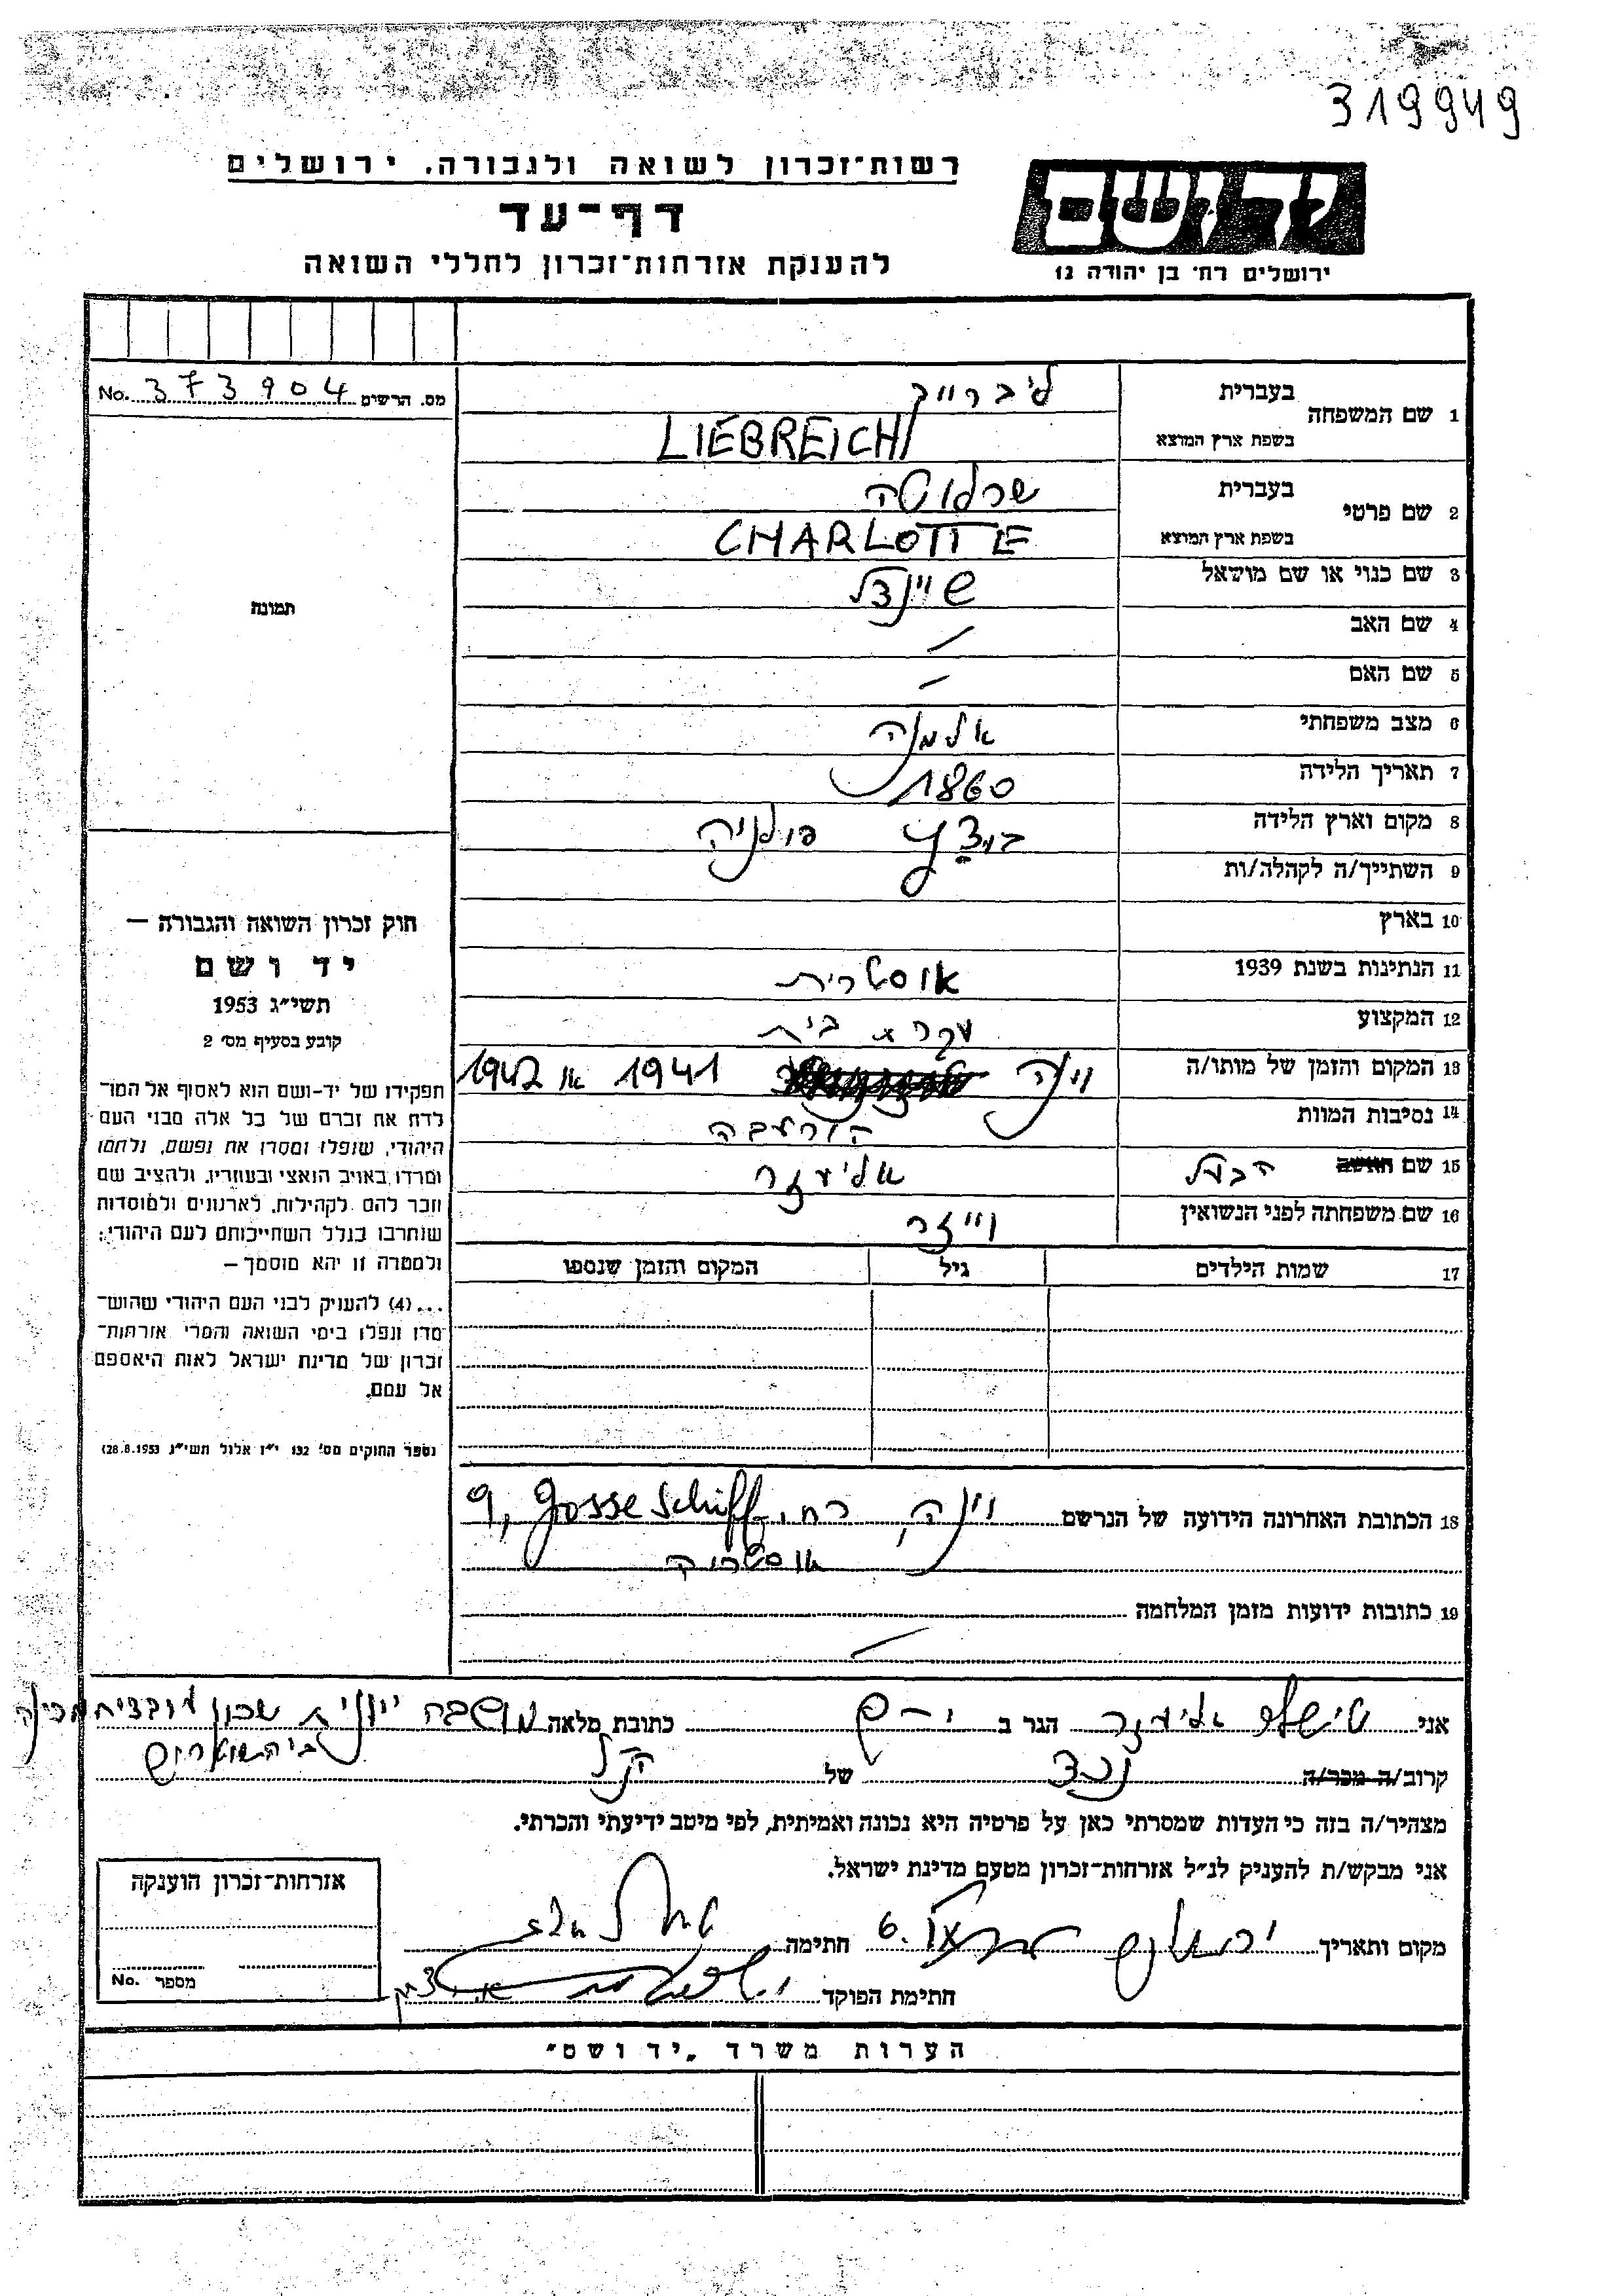 319949
רשות־זכרון לשואה ולגבורה, ירושלים
דף־עד
להענקת אזרחות־זכרון לחללי השואה
יד ושם
ירושלים רח׳ בן יהודה 12
מס. הרשים No. 373904
1 שם המשפחה בעברית ליברייך
בשפת ארץ המוצא LIEBREICH
2 שם פרטי בעברית שרלוטה
בשפת ארץ המוצא CHARLOTTE
3 שם כנוי או שם מושאל שיינדל
4 שם האב /
5 שם האם -
6 מצב משפחתי אלמנה
7 תאריך הלידה 1860
8 מקום וארץ הלידה פולניה
9 השתייך/ה לקהלה/ות
10 בארץ
11 הנתינות בשנת 1939 אוסטרית
12 המקצוע עקרת בית
13 המקום והזמן של מותו/ה וינה 1941 או 1942
14 נסיבות המוות הורעבה
15 שם האשה הבעל אליעזר
16 שם משפחתה לפני הנשואין וייזר
17 שמות הילדים גיל המקום והזמן שנספו
תמונה
חוק זכרון השואה והגבורה —
יד ושם
תשי״ג 1953
קובע בסעיף מס׳ 2
תפקידו של יד־ושם הוא לאסוף אל המו־
לדת את זכרם של כל אלה מבני העם
היהודי, שנפלו ומסרו את נפשם, נלחמו
ומרדו באויב הנאצי ובעוזריו, ולהציב שם
וזכר להם לקהילות, לארגונים ולמוסדות
שנחרבו בגלל השתייכותם לעם היהודי;
ולמטרה זו יהא מוסמך —
...(4) להעניק לבני העם היהודי שהוש־
מדו ונפלו בימי השואה והמרי אזרחות־
זכרון של מדינת ישראל לאות היאספם
אל עמם.
(ספר החוקים מס׳ 132 י״ז אלול תשי״ג 28.8.1953)
18 הכתובת האחרונה הידועה של הנרשם וינה, רח׳ gosse Schiff, 9
אוסטריה
19 כתובות ידועות מזמן המלחמה
/
אני טישלר אליעזר הגר ב י-ם כתובת מלאה מושבה יוונית שכון
קרוב/ה מכר/ה נכד של הנ״ל
מצהיר/ה בזה כי העדות שמסרתי כאן על פרטיה היא נכונה ואמיתית, לפי מיטב ידיעתי והכרתי.
אני מבקש/ת להעניק לנ״ל אזרחות־זכרון מטעם מדינת ישראל.
מקום ותאריך ירושלים חתימה
חתימת הפוקד
אזרחות־זכרון הוענקה
מספר No.
הערות משרד „יד ושם״